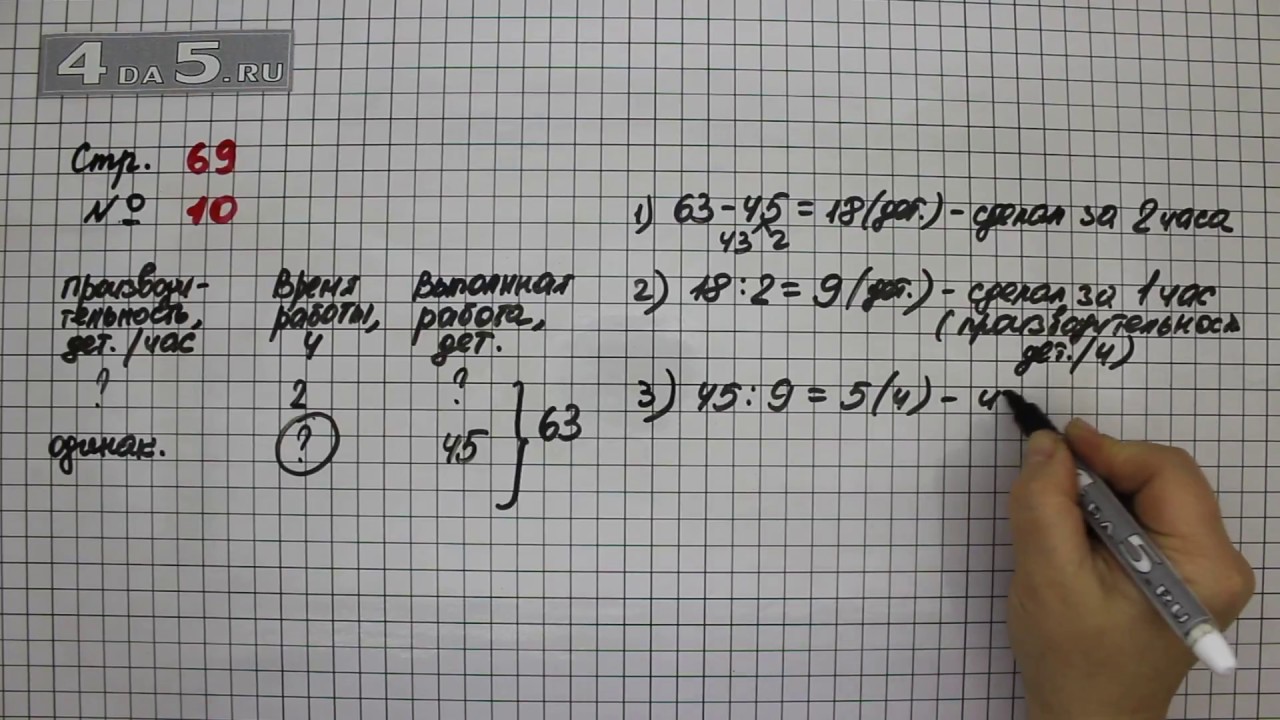 4 DA 5 .RU
Стр. 69
№ 10
производи-
тельность,
дет./час
Время
работы,
ч
Выполнная
работа,
дет.
? 2 ?
одинак. ? 45
63
1) 63 - 45 = 18 (дет.) - сделал за 2 часа
43 2
2) 18 : 2 = 9 (дет.) - сделал за 1 час
(производительность
дет./ч)
3) 45 : 9 = 5 (ч) -
DA 5 .RU